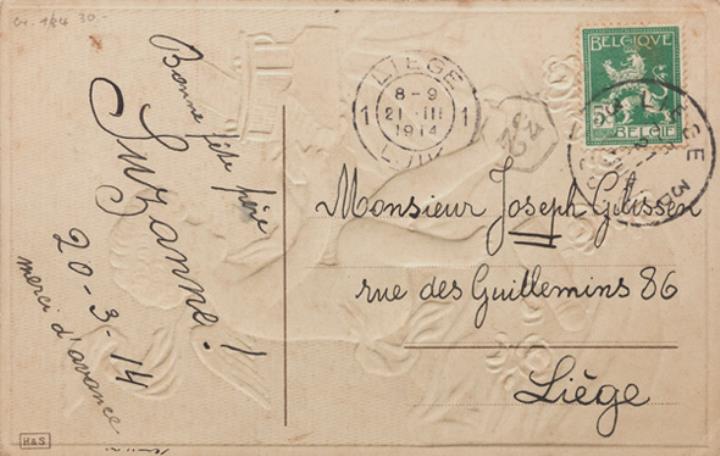 Bonne fête père
Suzanne!
20-3-14
merci d'avance
H&S
LIEGE
8-9
1 21 III 1
1914
LUIK
32
BELGIQUE
5
BELGIË
LIEGE
Monsieur Joseph Gilissen
rue des Guillemins 86
Liège